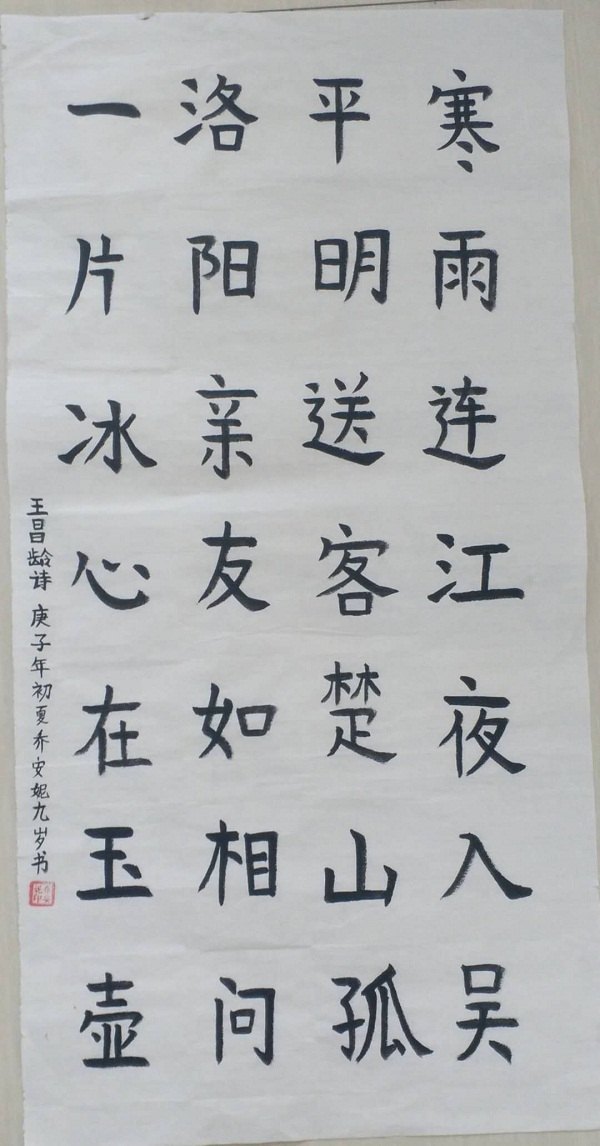 寒雨连江夜入吴
平明送客楚山孤
洛阳亲友如相问
一片冰心在玉壶
王昌龄诗 庚子年初夏乔安妮九岁书